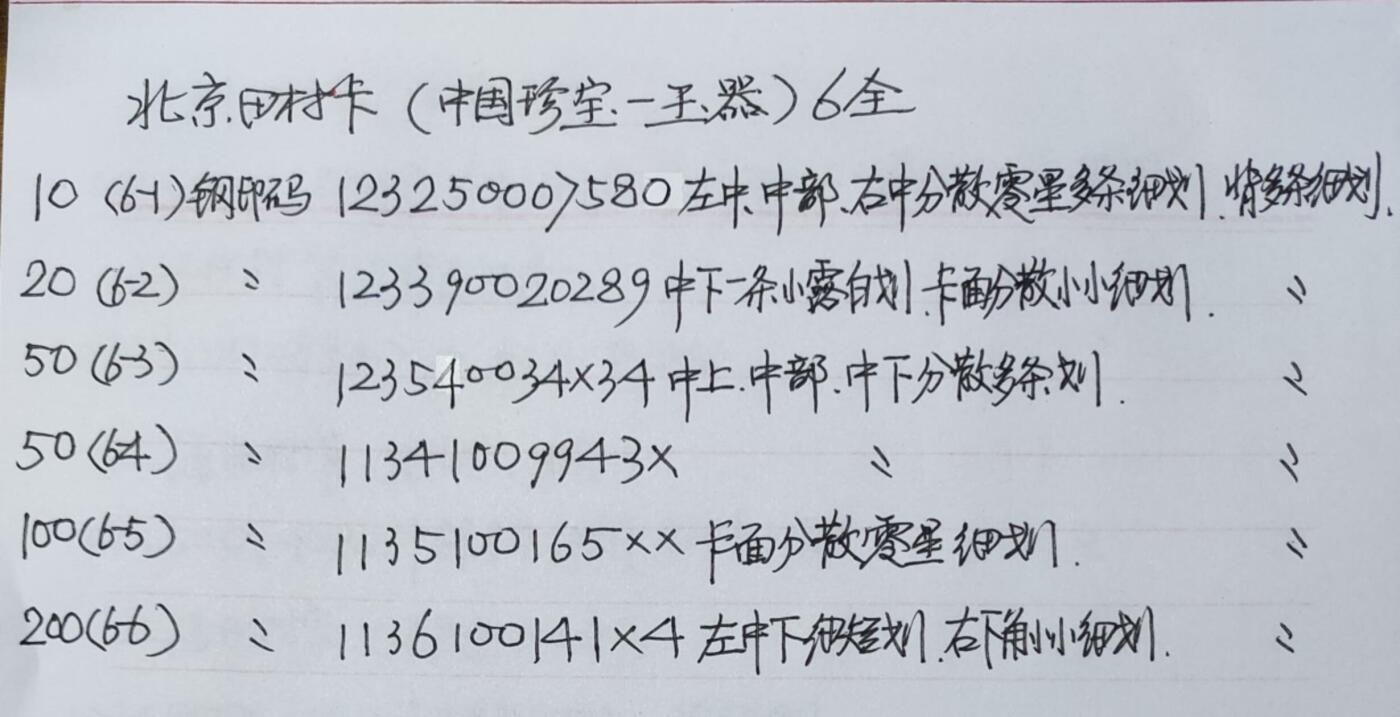 北京田村卡(中国珍宝—玉器)6全
10 (6-1)钢印码 123250007580 左中、中部、右中分散零星多条细划.背多条细划.
20 (6-2) 〃 123390020289 中下一条小露白划.卡面分散小小细划. 〃
50 (6-3) 〃 123540034×34 中上.中部.中下分散多条划. 〃
50 (6-4) 〃 11341009943× 〃 〃
100(6-5) 〃 1135100165×× 卡面分散零星细划. 〃
200(6-6) 〃 1136100141×4 左中下细短划.右下角小小细划. 〃